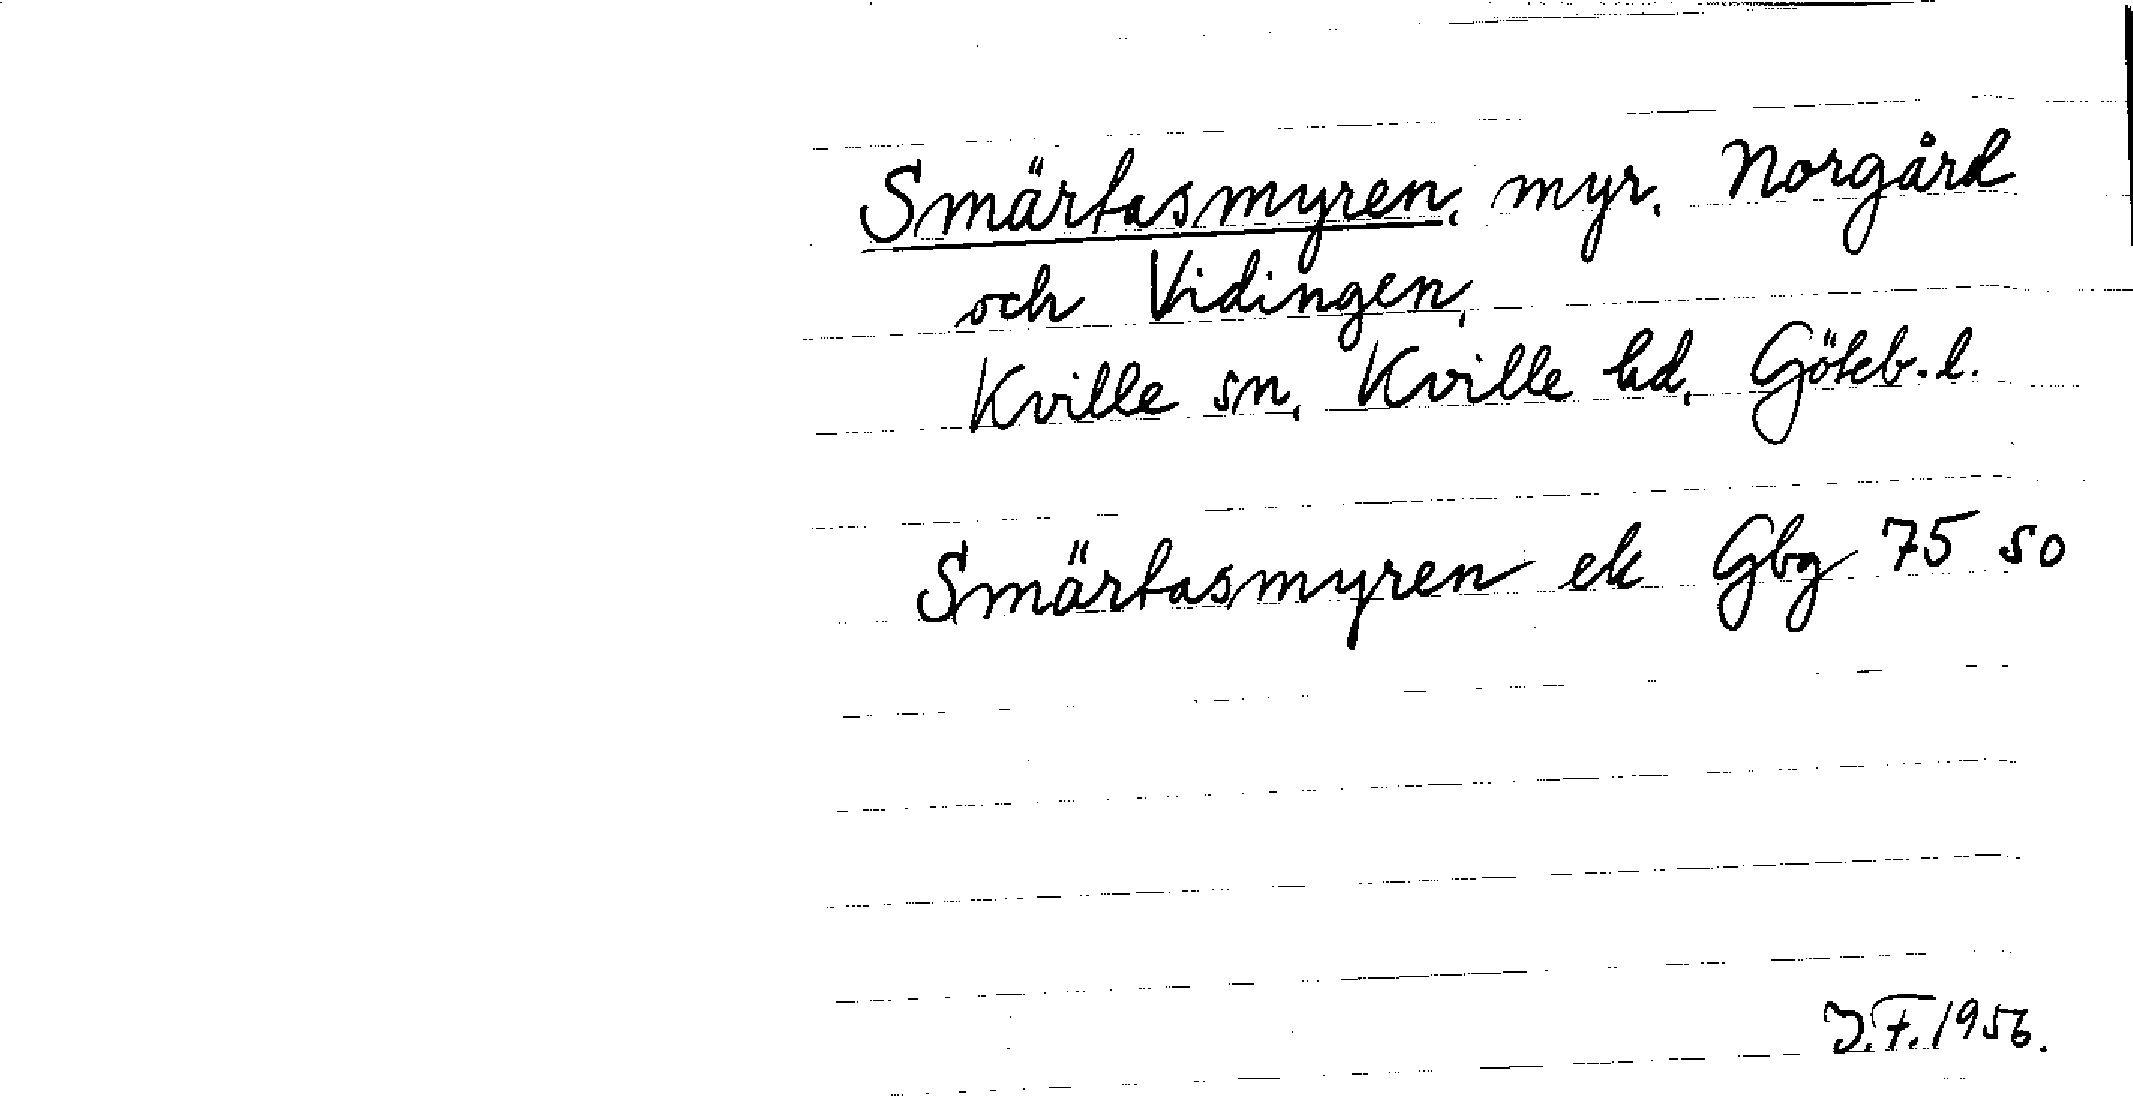 Smärtasmyren, myr, Norgård
och Vidingen,
Kville sn, Kville hd, Göteb. l.
Smärtasmyren ek Gbg 75 so
J.F. 1956.